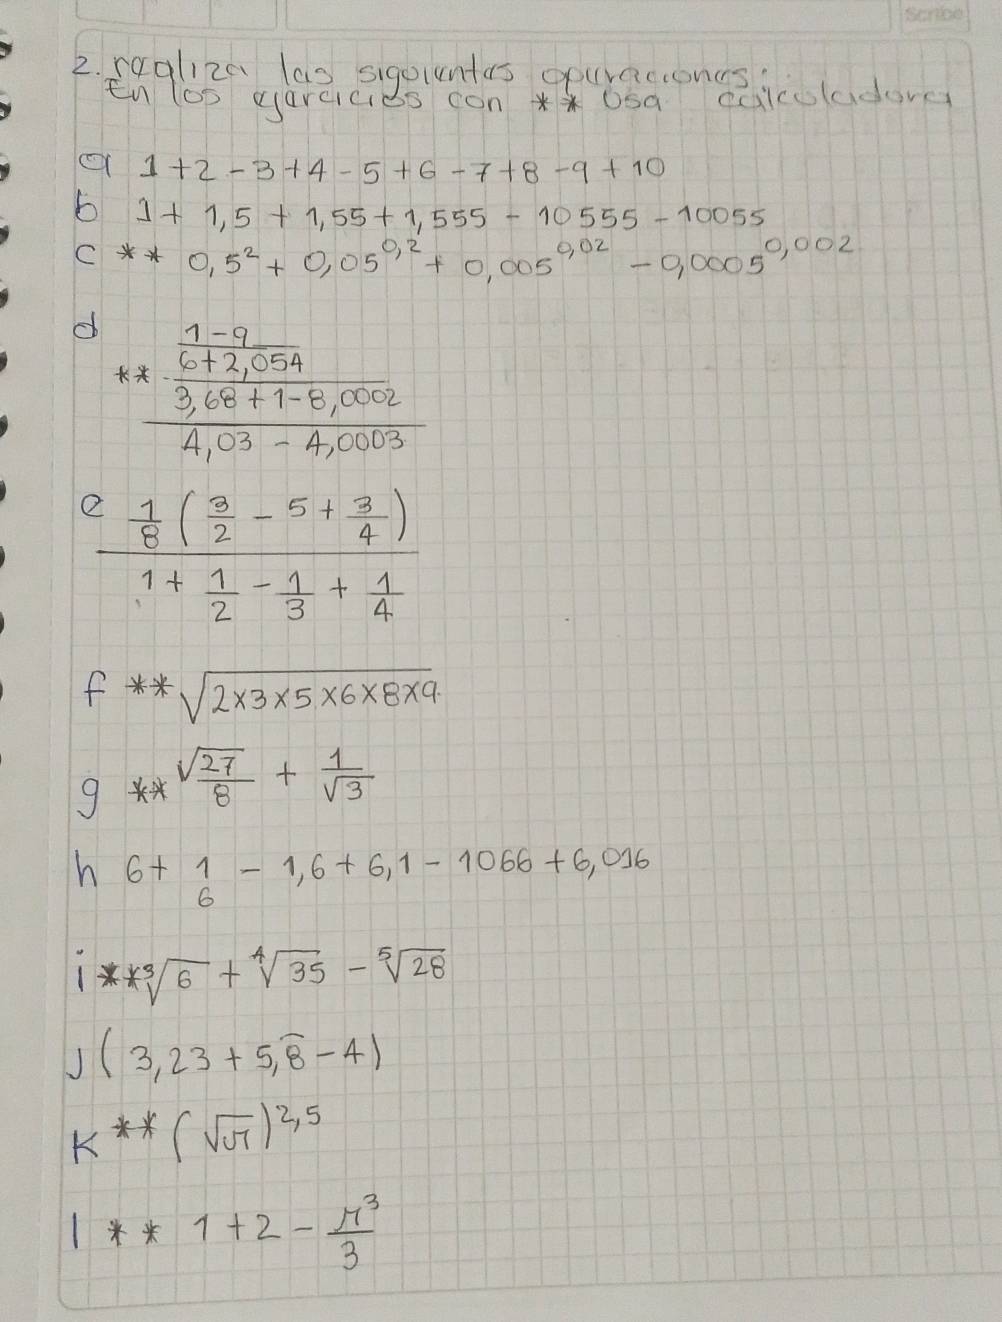 Scribe
2. realiza las siguientes operaciones:
En los ejercicios con ** usa calculadora
a 1+2-3+4-5+6-7+8-9+10
b 1+1,5+1,55+1,555-10555-10055
c ** 0,5² + 0,05^0,2 + 0,005^0,02 - 0,0005^0,002
d
1-9
6+2,054
** 3,68+1-8,0002
4,03 - 4,0003
e 1/8 (3/2 - 5 + 3/4)
1 + 1/2 - 1/3 + 1/4
f ** √2×3×5×6×8×9
g ** √27/8 + 1/√3
h 6+ 1/6 - 1,6+6,1-1066+6,016
i ** ³√6 + ⁴√35 - ⁵√28
J (3,23+5,8̅-4)
K ** (√π)^2,5
l ** 1+2- π³/3